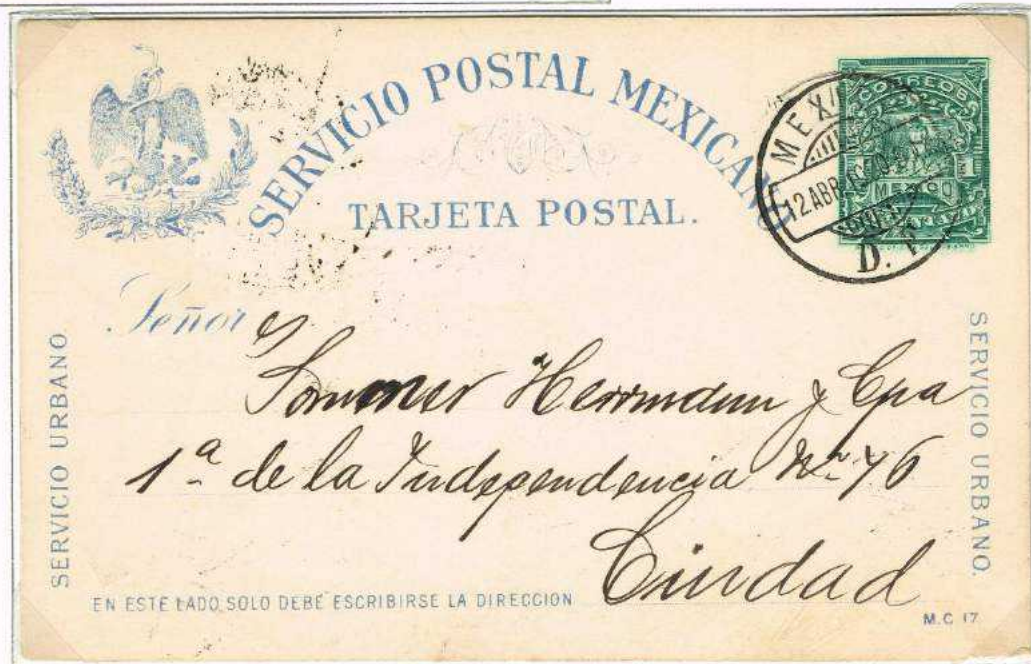 SERVICIO POSTAL MEXICANO
TARJETA POSTAL.
CORREOS
MEXICO
12 ABR
D. F.
Señor
Sommer Herrmann y Cpa
1ª de la Independencia Nº 46
Ciudad
SERVICIO URBANO
SERVICIO URBANO.
EN ESTE LADO SOLO DEBE ESCRIBIRSE LA DIRECCION
M.C 17